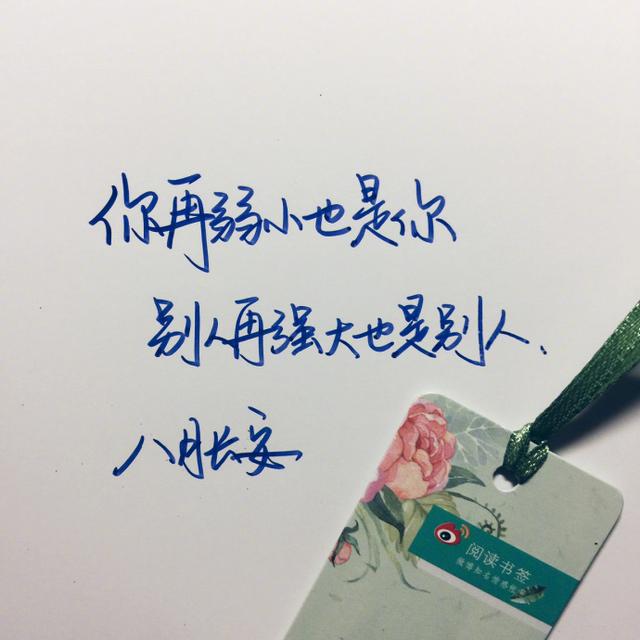 你再弱小也是你
别人再强大也是别人.
八月长安
阅读书签
微博知名情感